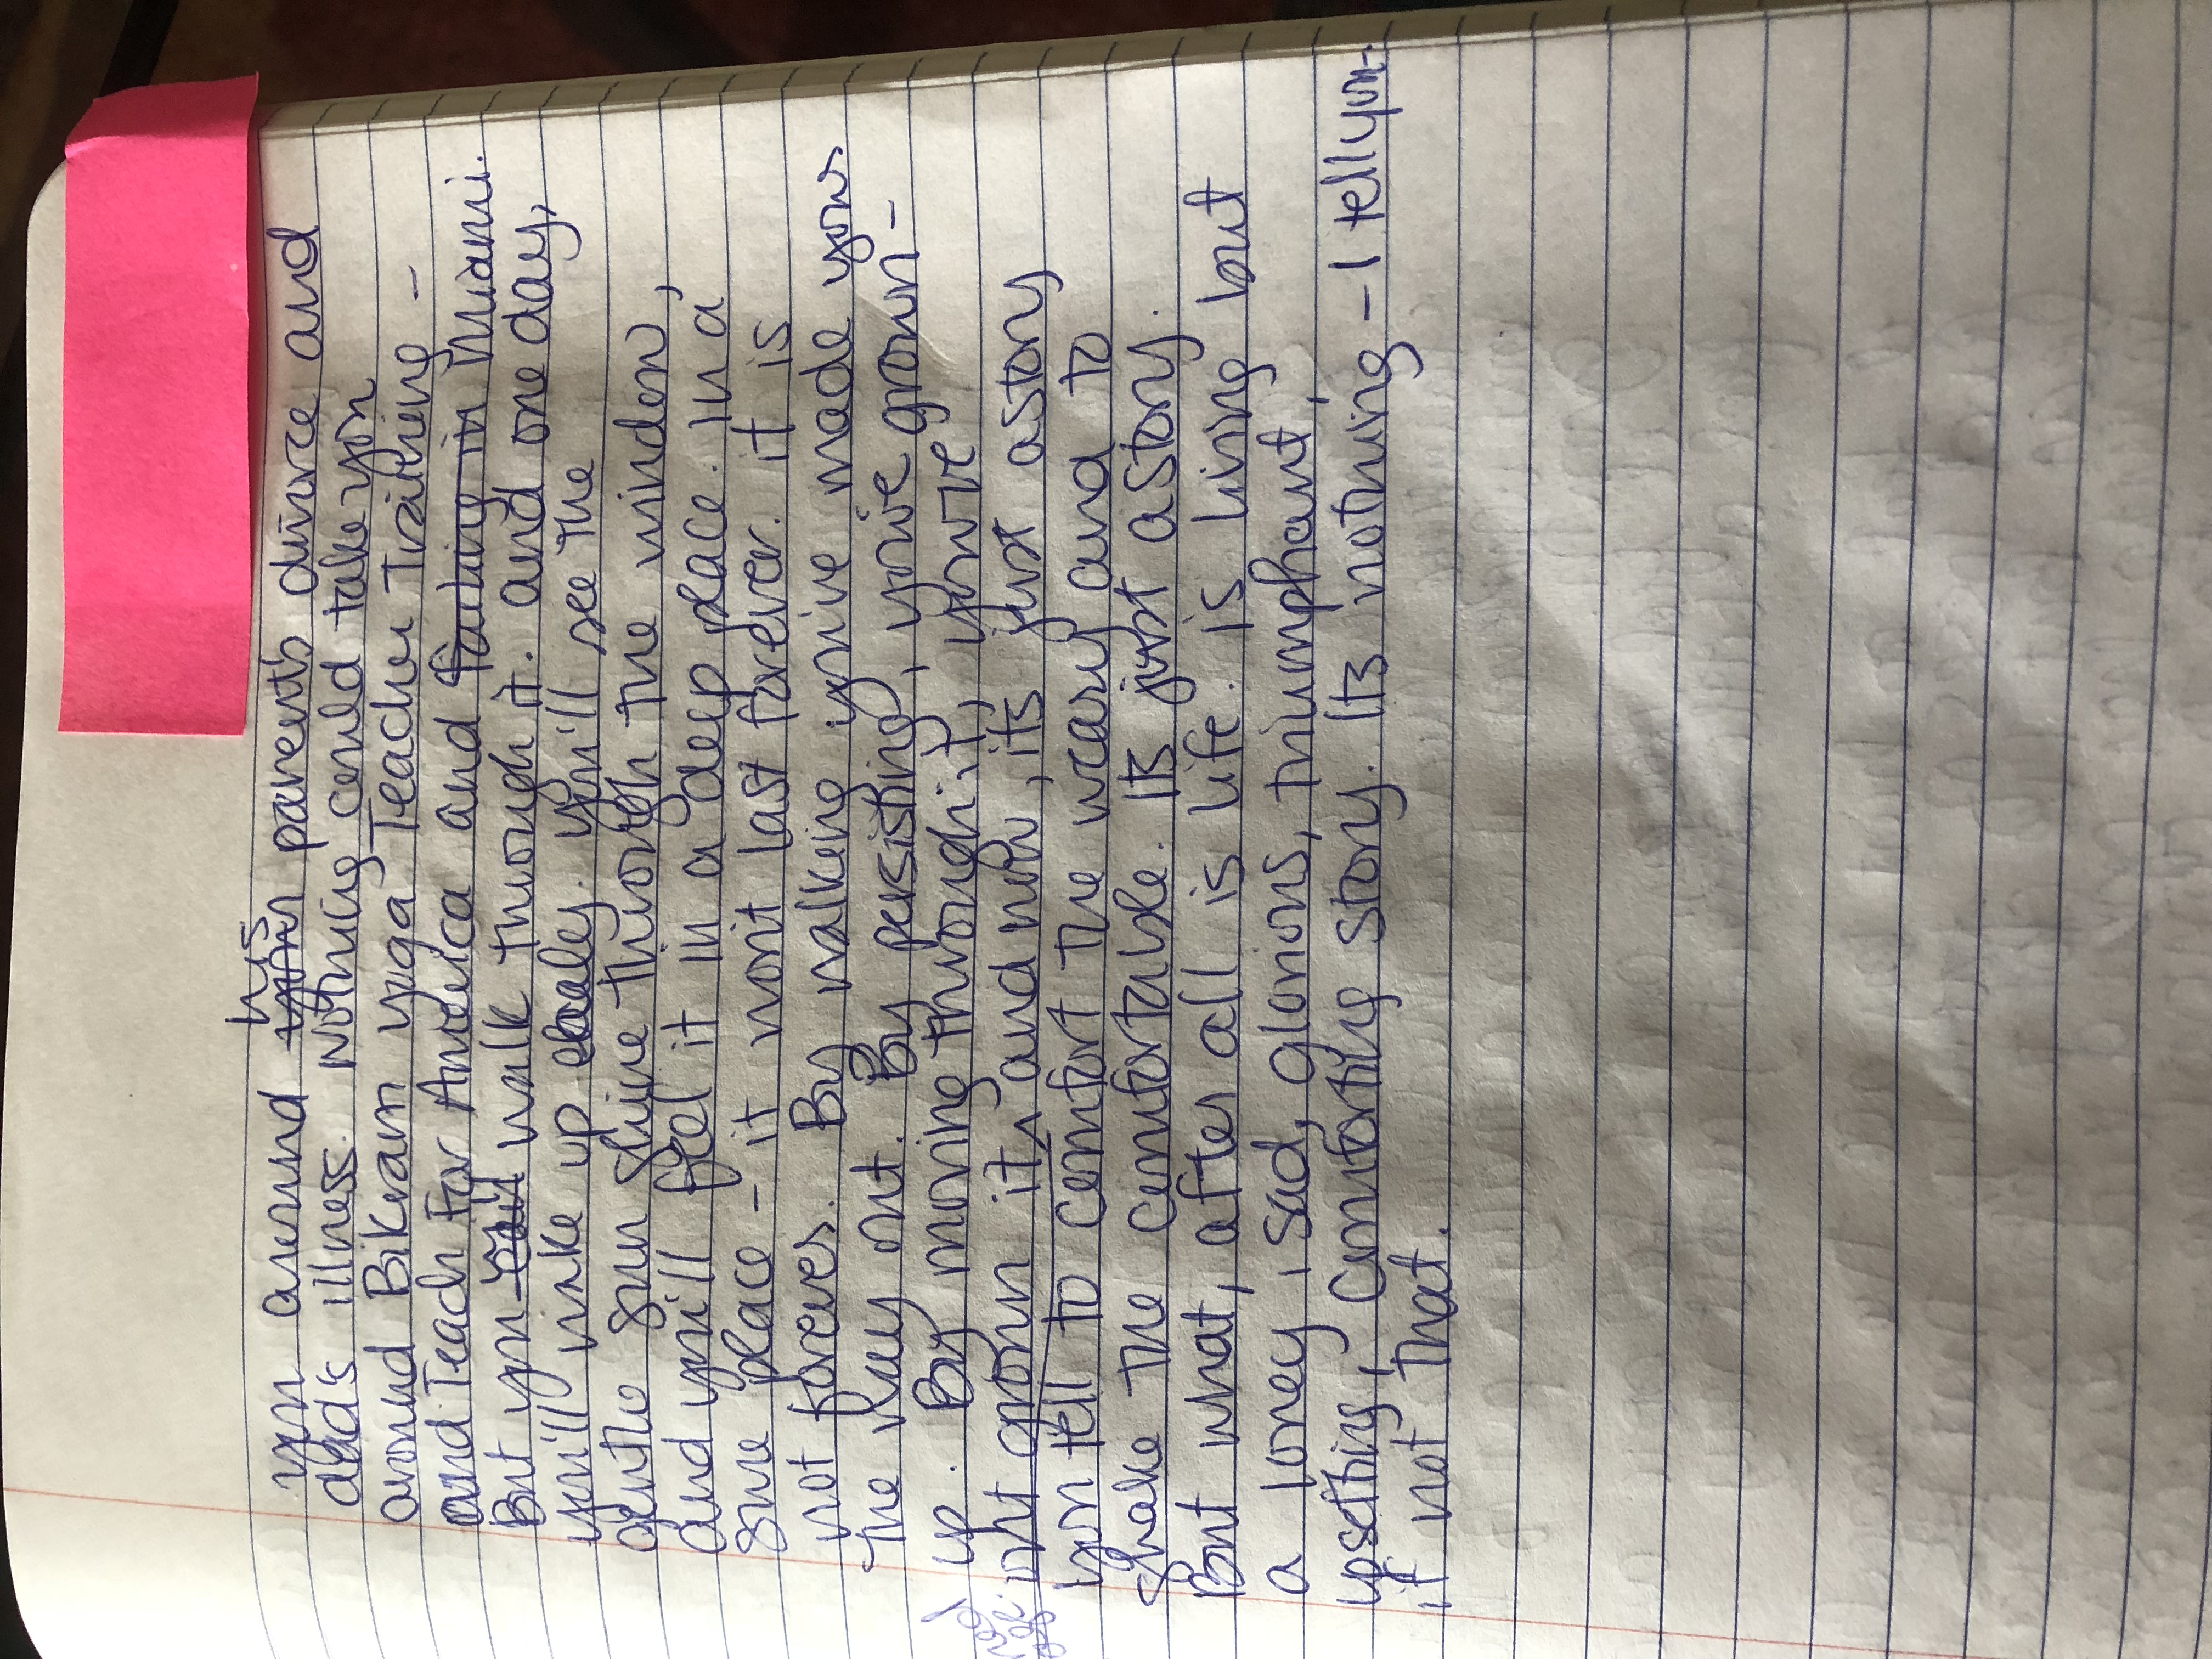 his
you around your parent's divorce and
dad's illness. Nothing could take you
around Bikram Yoga Teacher Training -
and Teach For America and failing in Miami.
will
But you can walk through it. and one day,
you'll wake up early. You'll see the
gentle sun shine through the window,
and you'll feel it in a deep place. In a
sure place - it won't last forever. it is
not forever. By walking you've made yours
the way out. By persisting, you've grown-
up. By moving through it, you've
out grown it, and now, its just a story
you tell to comfort the weary and to
shake the comfortable. Its just a story.
But what, after all is life. is living but
a loney, sad, glorious, triumphant,
upsetting, comforting story. Its nothing - I tell you-
if not that.